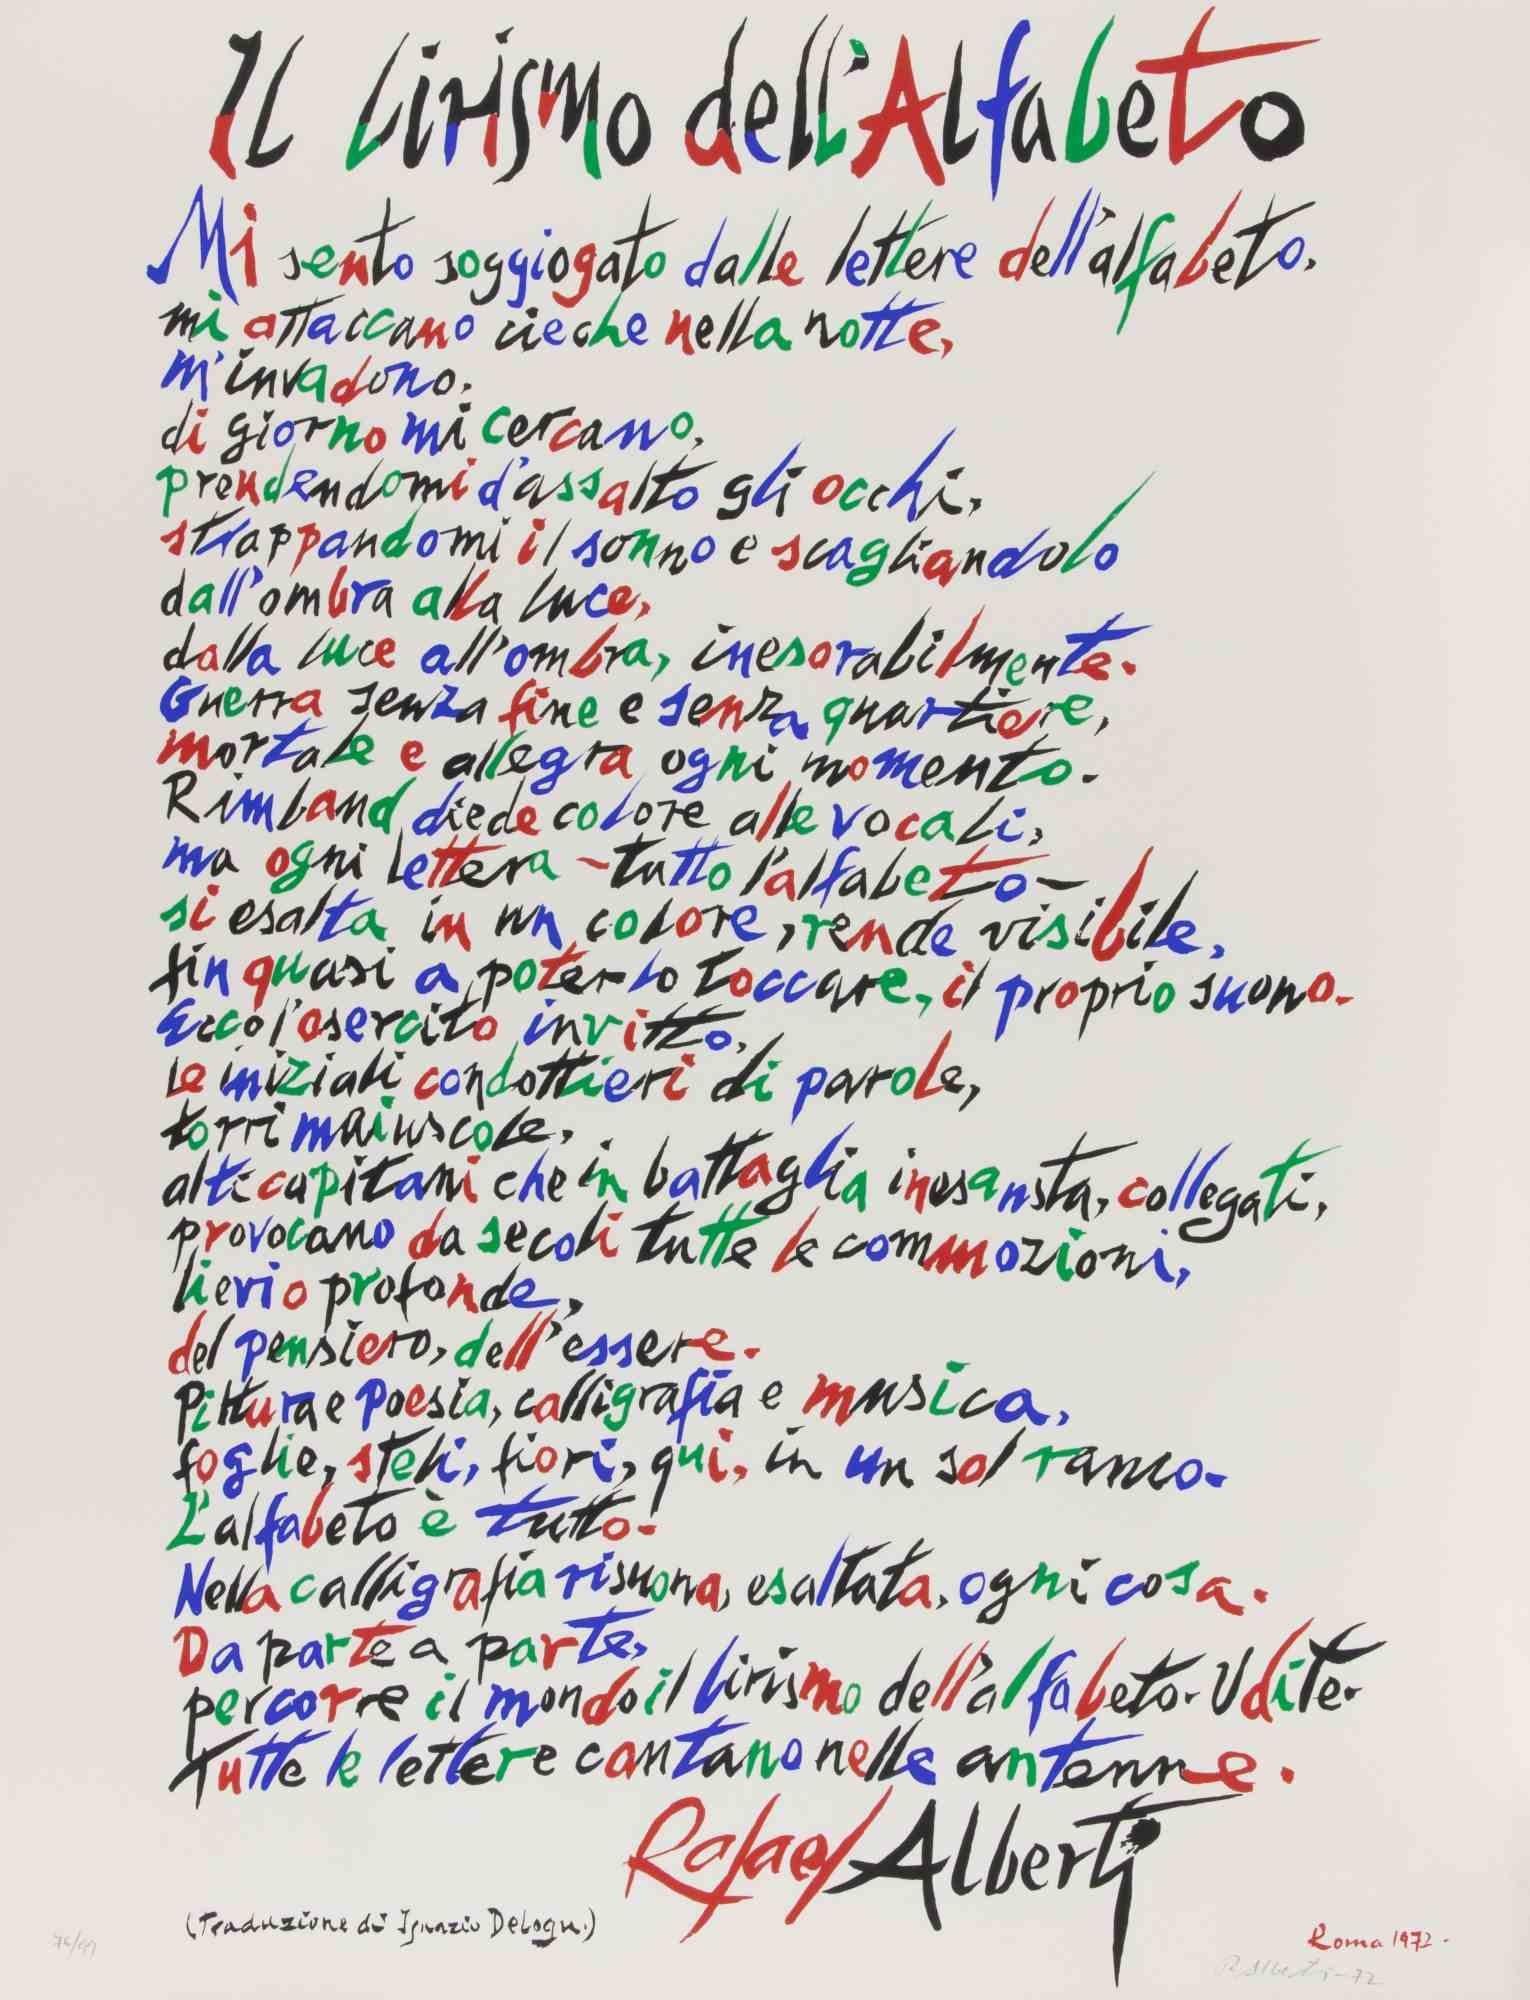 Il Lirismo dell'Alfabeto
Mi sento soggiogato dalle lettere dell'alfabeto.
mi attaccano cieche nella notte,
m'invadono.
di giorno mi cercano,
prendendomi d'assalto gli occhi,
strappandomi il sonno e scagliandolo
dall'ombra alla luce,
dalla luce all'ombra, inesorabilmente.
Guerra senza fine e senza quartiere,
mortale e allegra ogni momento.
Rimbaud diede colore alle vocali,
ma ogni lettera - tutto l'alfabeto -
si esalta in un colore, rende visibile,
fin quasi a poterlo toccare, il proprio suono.
Ecco l'esercito invitto,
le iniziali condottieri di parole,
torri maiuscole,
alti capitani che in battaglia inesausta, collegati,
provocano da secoli tutte le commozioni,
lievi o profonde,
del pensiero, dell'essere.
Pittura e Poesia, calligrafia e musica,
foglie, steli, fiori, qui, in un sol ramo.
L'alfabeto è tutto.
Nella calligrafia risuona, esaltata, ogni cosa.
Da parte a parte,
percorre il mondo il lirismo dell'alfabeto. Udite.
Tutte le lettere cantano nelle antenne.
Rafael Alberti
(Traduzione di Ignazio Delogu.)
Roma 1972.
76/99
R. Alberti - 72